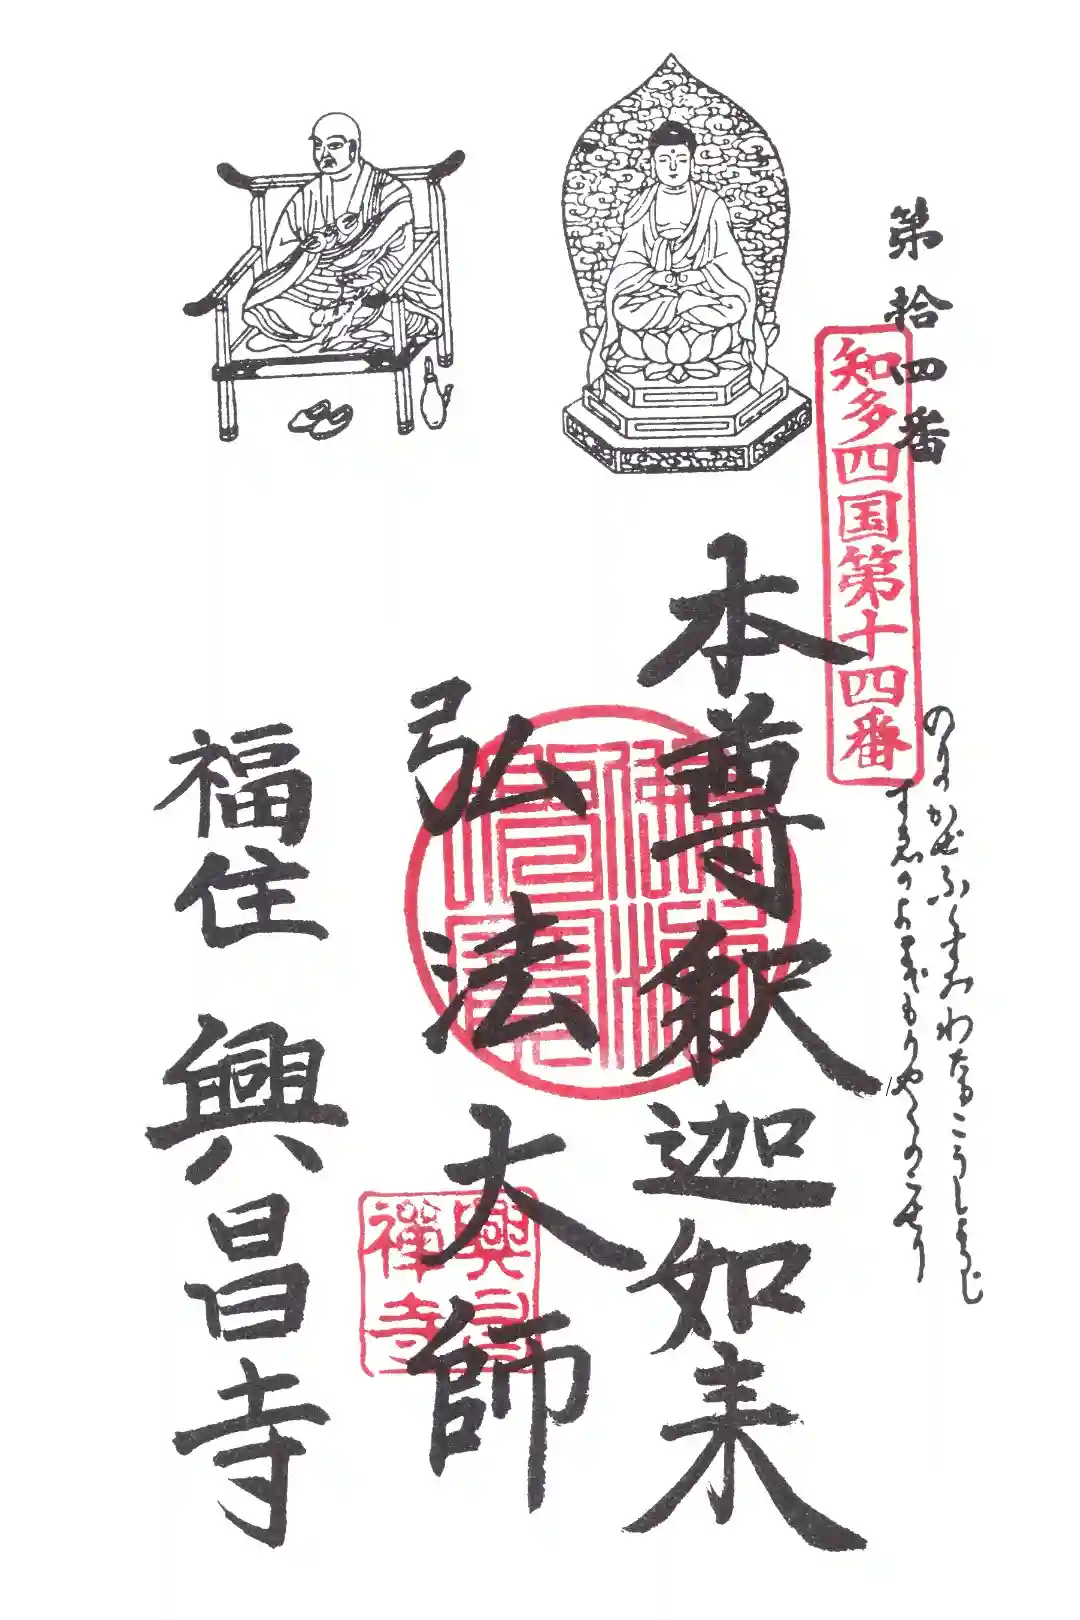 第拾四番
知多四国第十四番
のりのかぜふくすみわたるこうしょうじ
すゑのよまでもりやくのこせり
本尊釈迦如来
佛法僧寶
弘法大師
興昌禪寺
福住 興昌寺